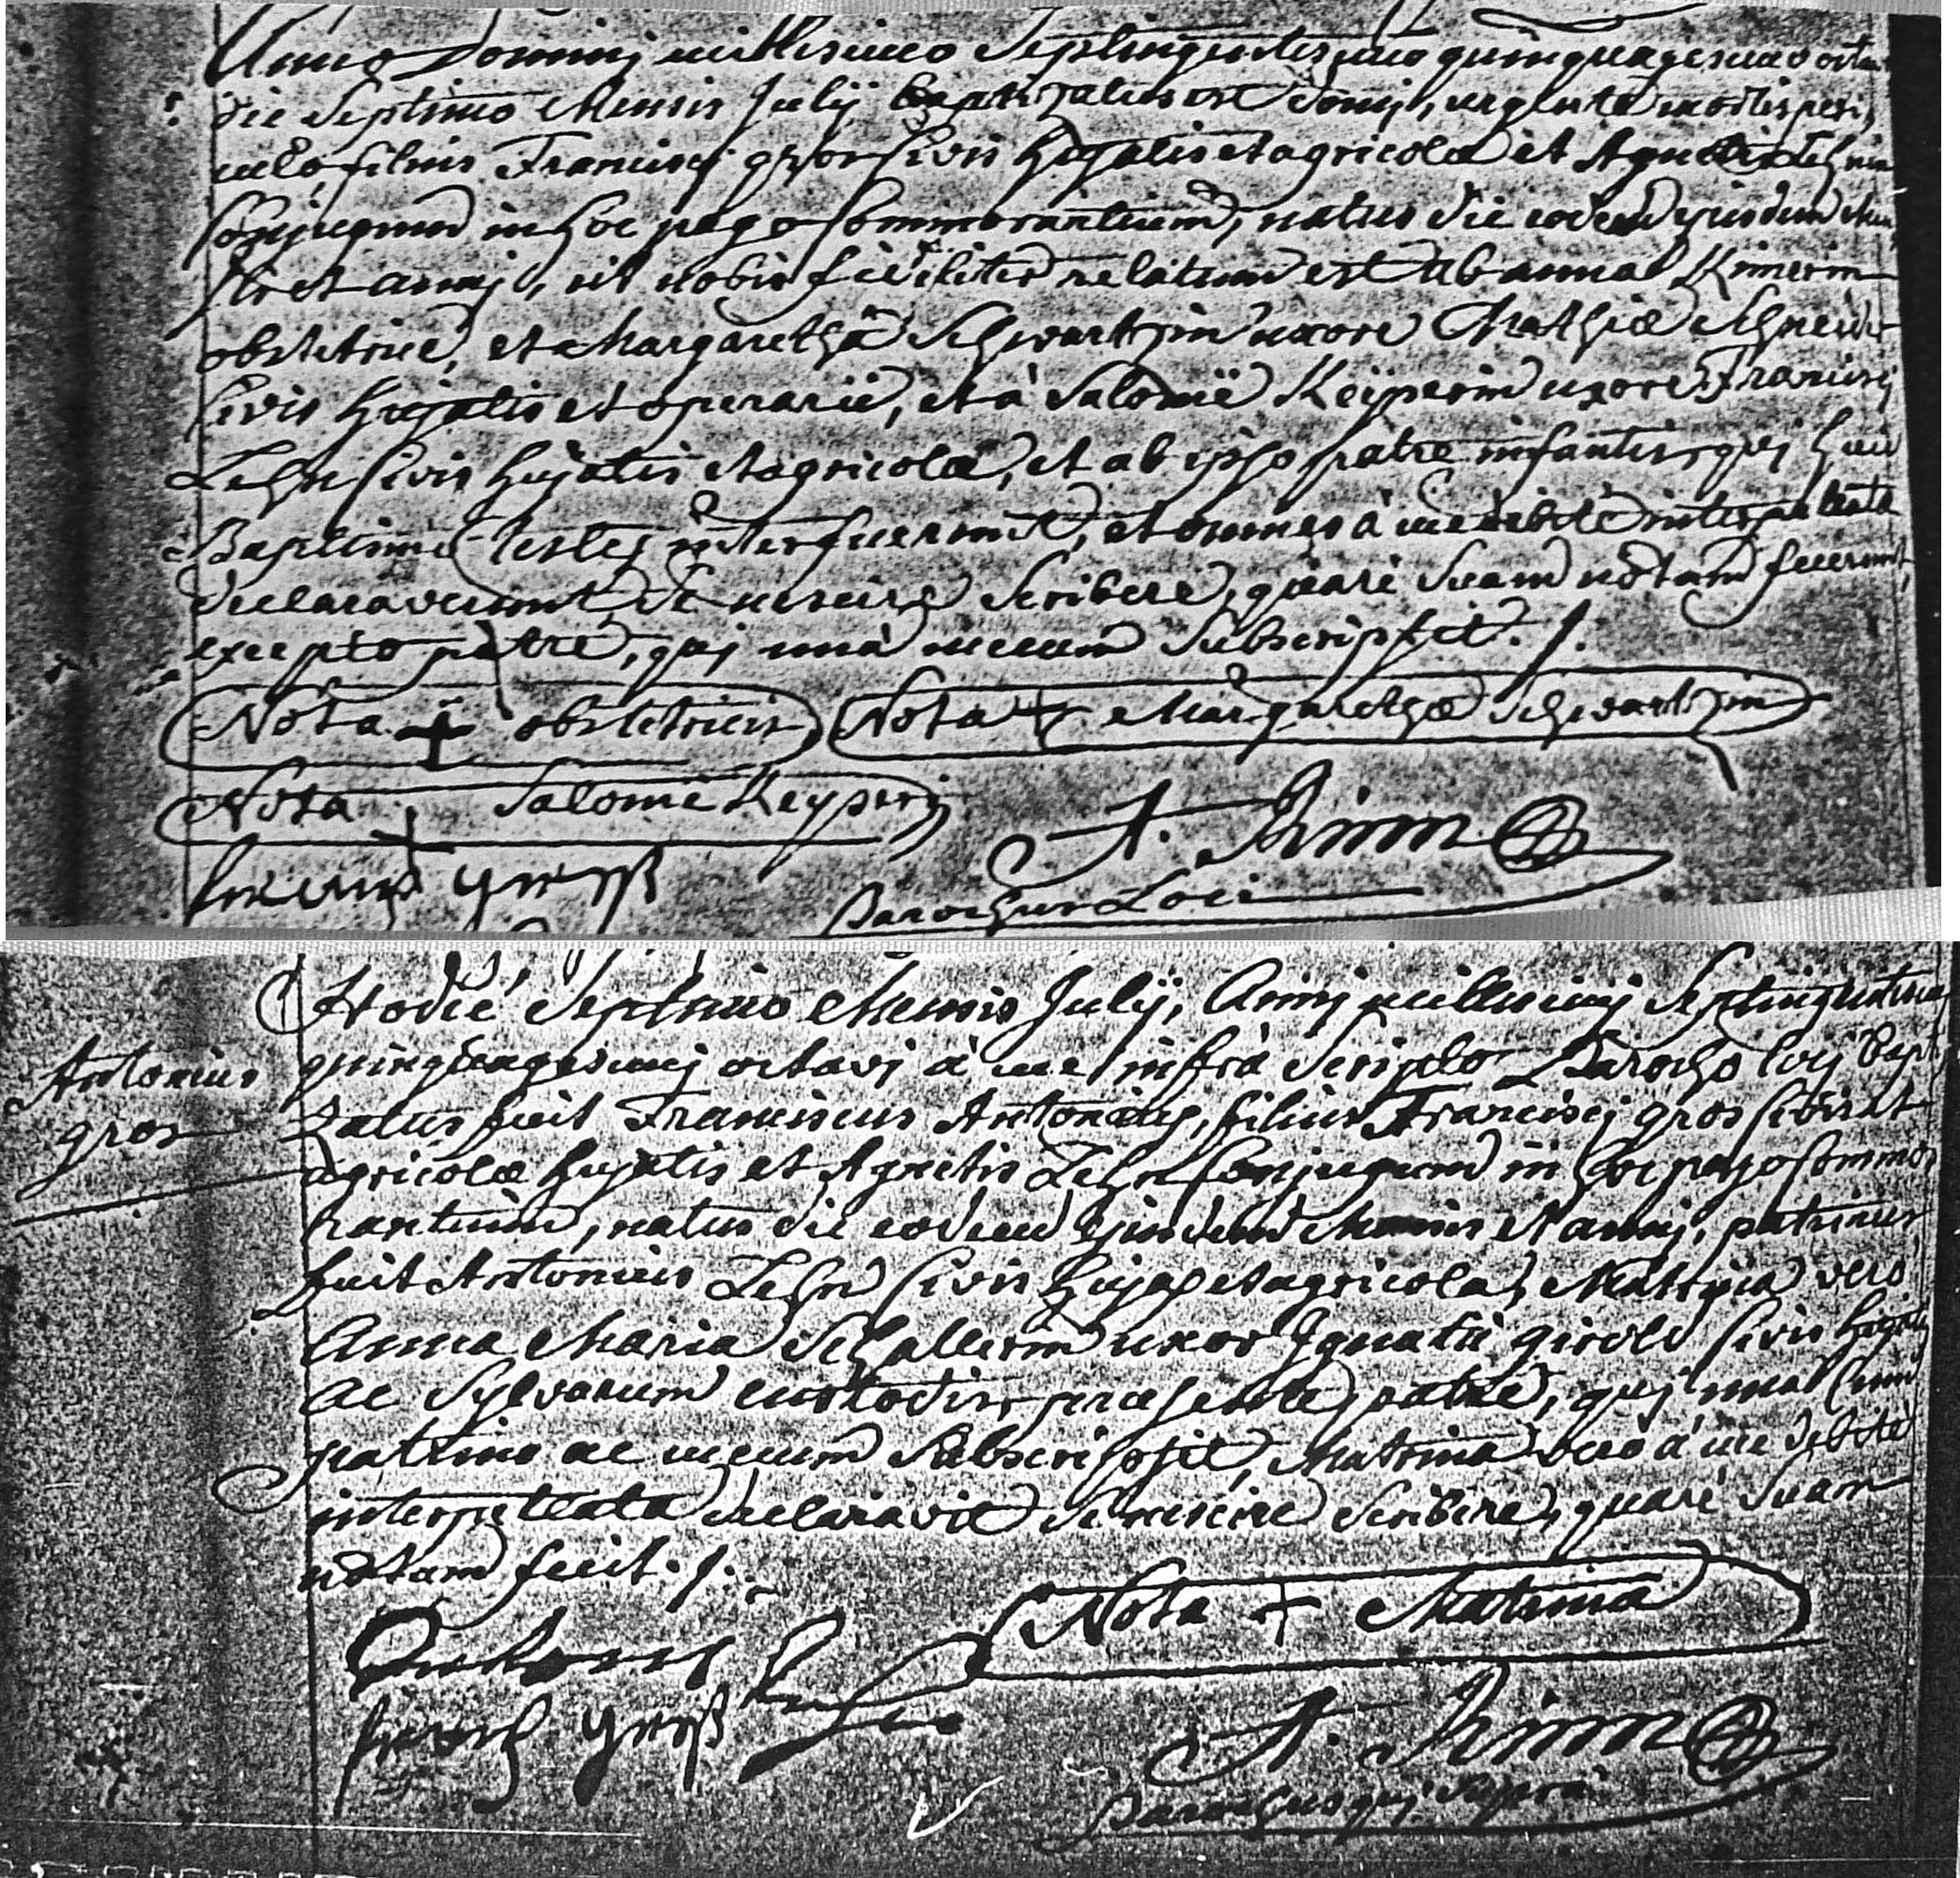 Anno Domini millesimo Septingentesimo quinquagesimo octa
die Septimo Mensis Julij baptizatus est domi, urgente mortis peri,
culo filius Francisci gros Civis hujatis et agricolæ et Agnetis Lehnin
Conjugum in hoc pago Commorantium, natus die eodem ejusdem Men,
sis et anni, ut nobis fideliter relatum est ab anna Kimerin
obstetrice, et Margaretha Schwartzin uxore Mathiæ Schneider
Civis hujatis et operarii, et à Salome Keijperin uxore Francisci
Lehn Civis hujatis et agricolæ, et ab ipso patre infantis, qui huic
Baptismo testes interfuerunt, et omnes à me debite interpellata
declaraverunt se nescire scribere, quare suam notam fecerunt,
excepto patre, qui una mecum Subscripsit. /.
Nota + obstetricis Nota + Margarethæ Schwartzin
Nota + Salome Keyperin
frantz groß A. Rinn
Parochus Loci
Hodie Septimo Mensis Julij, Anni millesimi Septingentesimi
Antonius quinquagesimi octavi à me infrà Scripto Parocho loci bapti
gros zatus fuit Franciscus Antonius, filius Francisci gros Civis et
agricolæ hujatis et Agnetis Lehn Conjugum in hoc pago Commo
rantium, natus die eodem ejusdem Mensis et anni, patrinus
fuit Antonius Lehn Civis hujas et agricola, Matrina vero
Anna Maria Schallerin uxor Ignatii girold Civis hujatis
ac Sylvarum custodis, præsente patre, qui una Cum
patrino ac mecum Subscripsit, Matrina vero à me debite
interpellata declaravit se nescire scribere, quare suam
notam fecit. /.
Nota + Matrina
frantz groß A. Rinn
Parochus qui Supra